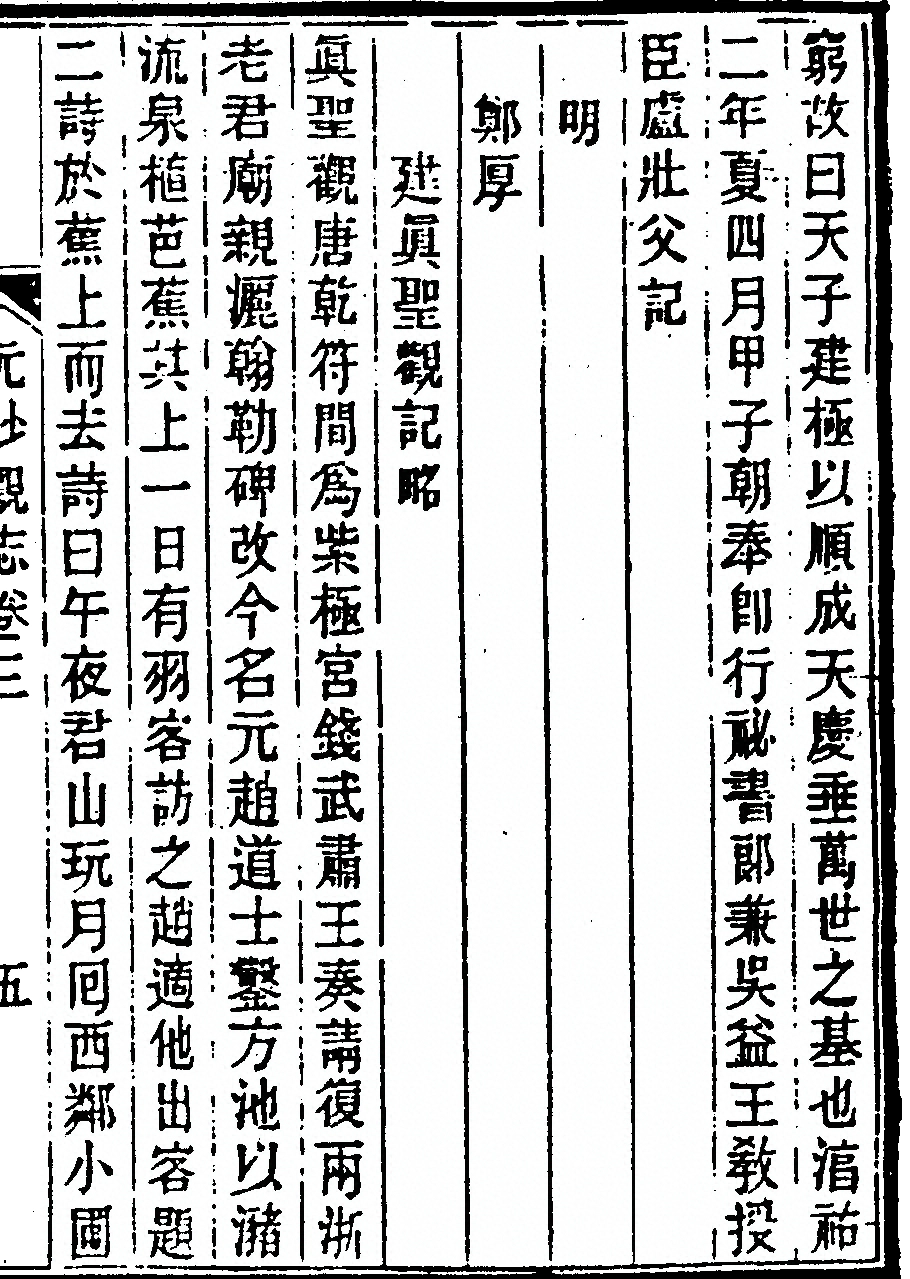 窮故曰天子建極以順成天慶垂萬世之基也㴞祐
二年夏四月甲子朝奉郎行祕書郎兼吳益王敎授
臣盧壯父記
明
鄭厚
建眞聖觀記略
眞聖觀唐乾符間爲柴極宮錢武肅王奏請復兩浙
老君廟親灑翰勒碑改今名元趙道士鑿方池以瀦
流泉植芭蕉其上一日有羽客訪之趙適他出客題
二詩於蕉上而去詩曰午夜君山玩月囘西鄰小圃
元妙觀志卷三
五